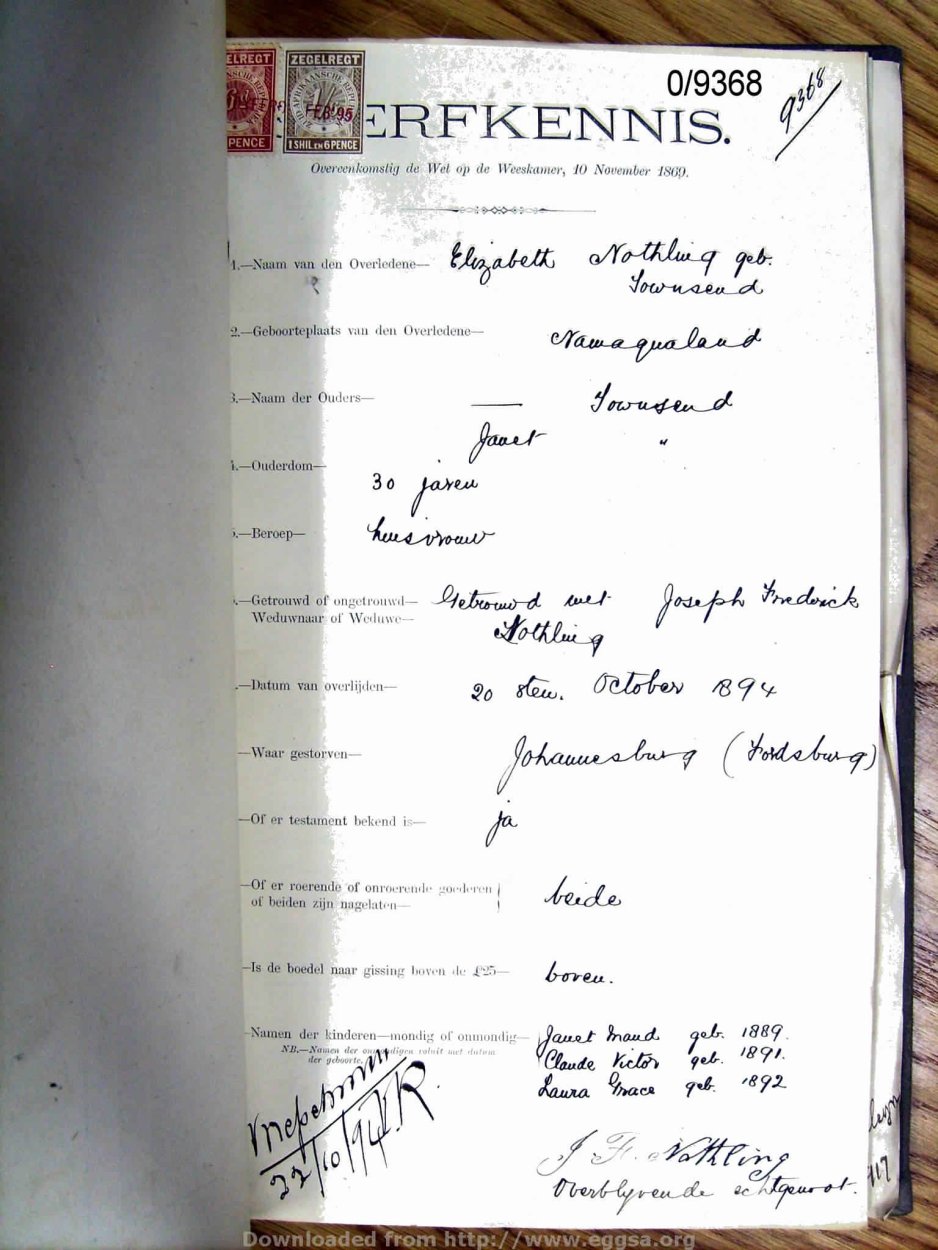 ZEGELREGT
ZEGELREGT
FEB 95
PENCE
1 SHIL EN 6 PENCE
0/9368
9368
ERFKENNIS.
Overeenkomstig de Wet op de Weeskamer, 10 November 1869.
1.—Naam van den Overledene— Elizabeth Nothling geb.
Townsend
2.—Geboorteplaats van den Overledene— Namaqualand
3.—Naam der Ouders— — Townsend
Janet "
4.—Ouderdom— 30 jaren
5.—Beroep— huisvrouw
—Getrouwd of ongetrouwd— Getrouwd met Joseph Frederick
Weduwnaar of Weduwe— Nothling
.—Datum van overlijden— 20 sten. October 1894
—Waar gestorven— Johannesburg (Fordsburg)
—Of er testament bekend is— ja
—Of er roerende of onroerende goederen
of beiden zijn nagelaten— beide
—Is de boedel naar gissing boven de £25— boven.
—Namen der kinderen—mondig of onmondig— Janet Maud geb. 1889.
NB.—Namen der onmondigen voluit met datum
der geboorte. Claude Victor geb. 1891.
Laura Grace geb. 1892
22/10/94
J. F. Nothling
Overblyvende echtgenoot.
Downloaded from http://www.eggsa.org